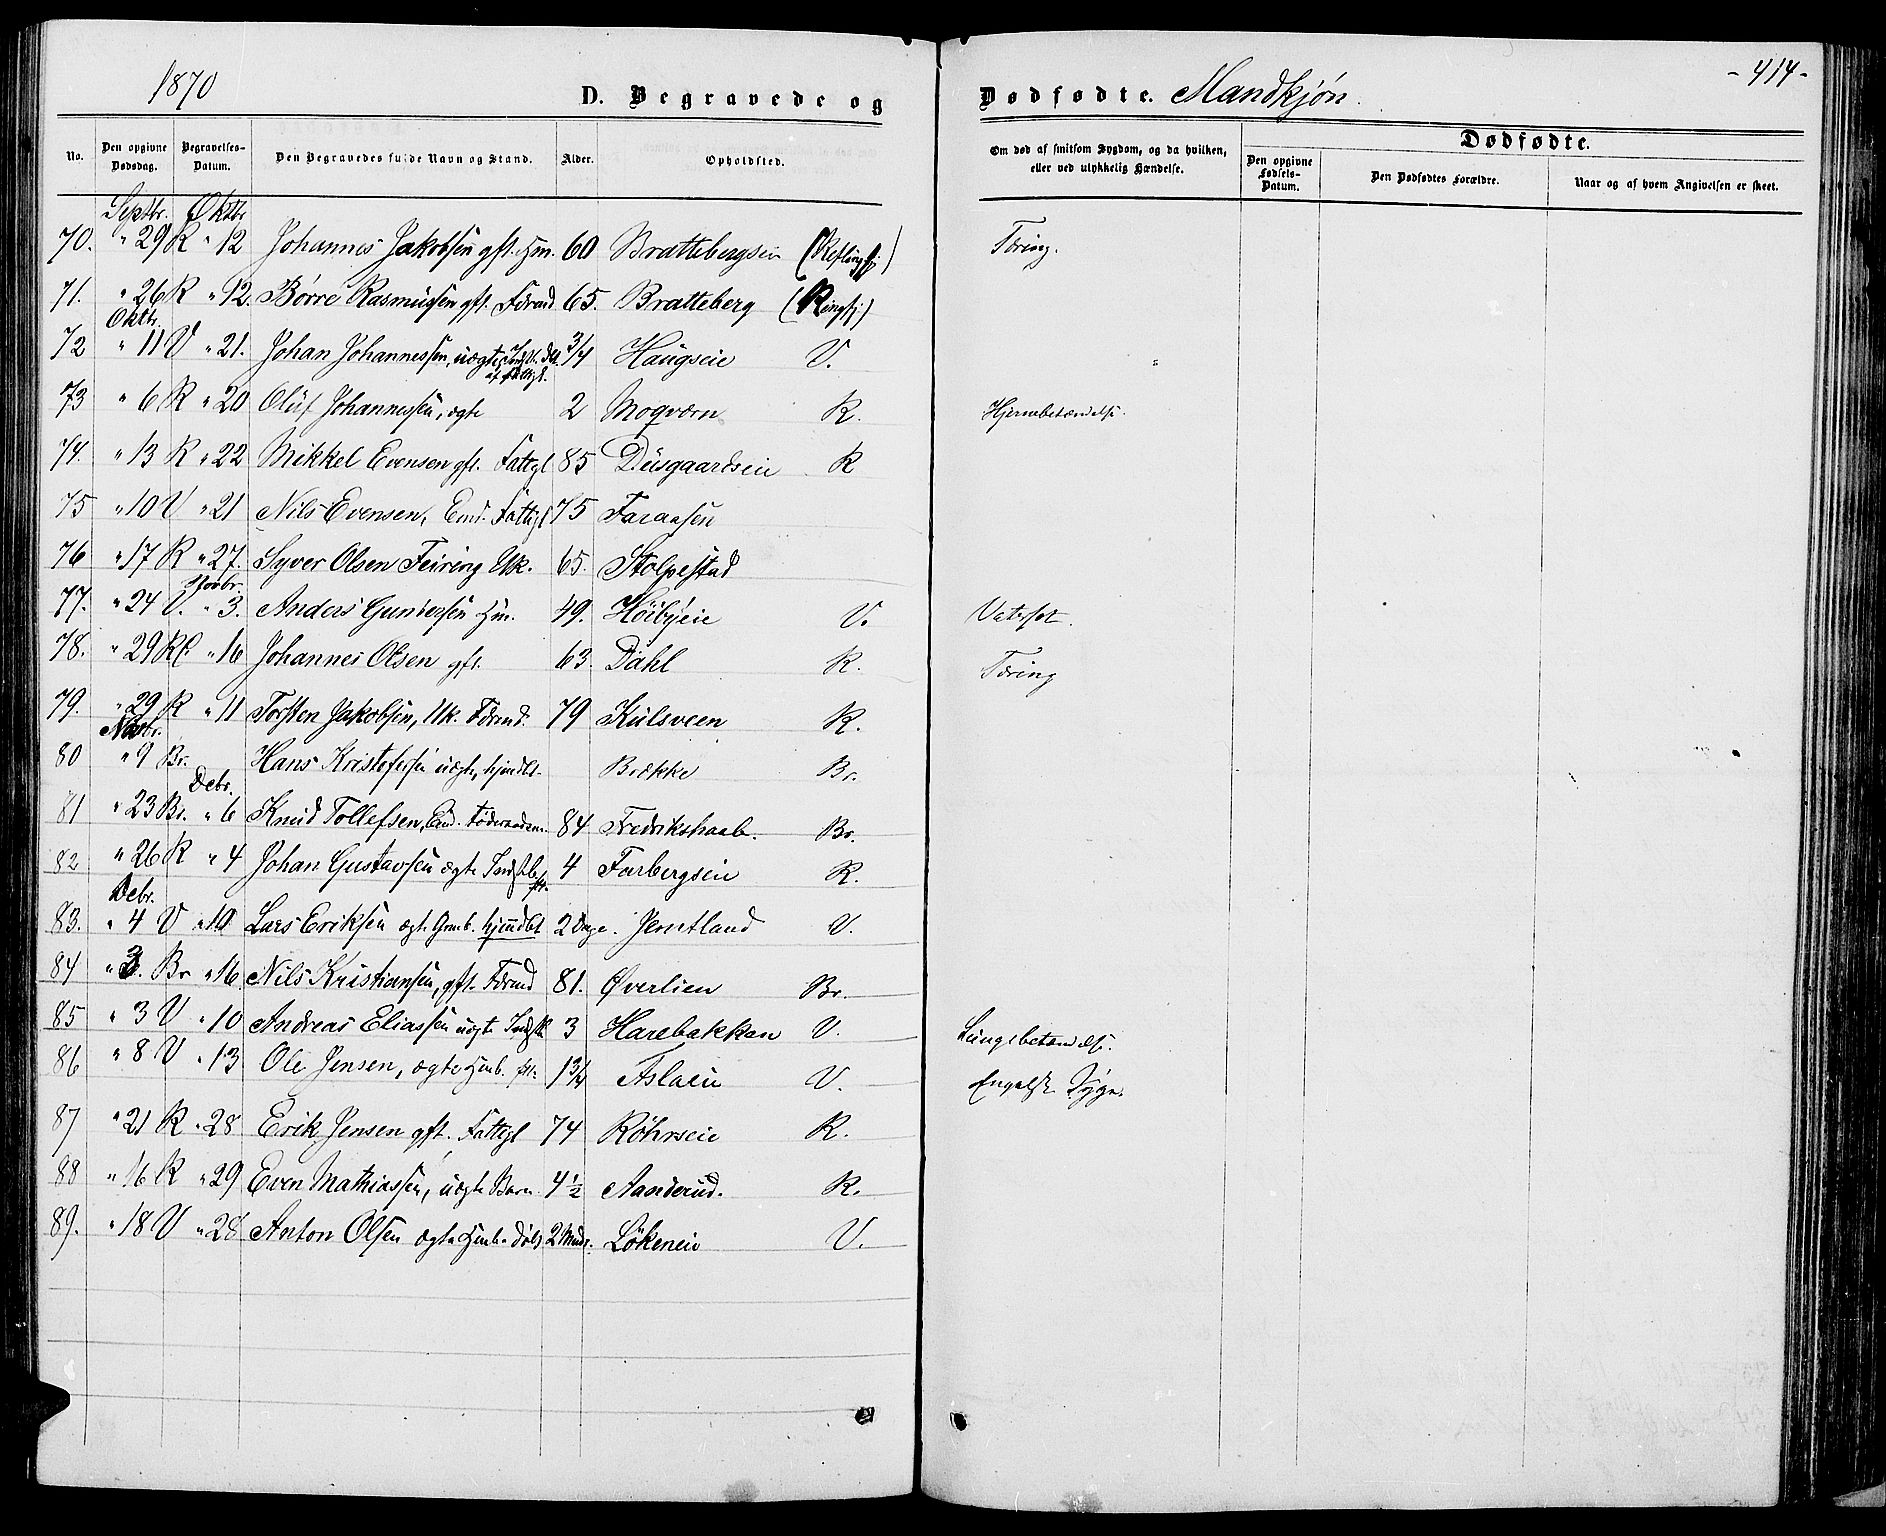 1870
D. Begravede og Dødfødte. Mandkjøn.
-414-
No. Den opgivne Dødsdag. Begravelses-Datum. Den Begravedes fulde Navn og Stand. Alder. Opholdsted. Om død af smitsom Sygdom, og da hvilken, eller ved ulykkelig Hændelse. Dødfødte.
Den opgivne Fødsels-Datum. Den Dødfødtes Forældre. Naar og af hvem Angivelsen er skeet.
Septbr. Oktbr
70. " 29 R " 12 Johannes Jakobsen gft. Hm. 60 Brattebergseie Tæring.
71. " 26 R " 12. Börre Rasmussen gft. Förand 65. Bratteberg
Oktbr.
72 " 11 V " 21. Johan Johannessen, uægte 3/4 Haugseie V.
73 " 6 R " 20 Oluf Johannessen, ægte 2 Moqværn R. Hjernebetændelse.
74. " 13 R " 22 Mikkel Evensen gft. Fattigl 85 Diisgaardseie R
75 " 10 V " 21 Nils Evensen, Enk. Fattigl 75 Faraasen
76 " 17 R " 27. Syver Olsen Feiring Uk. 65. Stolpestad
Novbr.
77. " 24 V. " 3. Anders Gundersen Hm. 49. Höibyeie V. Vatersot.
78. " 29 R " 16 Johannes Olsen gft. 63. Dahl R. Tæring
79. " 29 R " 11 Torsten Jakobsen, Uk. Förand. 79 Kulsveen R.
Novbr.
80 " 9 Br. Hans Kristofersen uægte, hjmdbt. Brække Br.
Debr.
81 " 23 Br. " 6 Knud Tollefsen, Enk. Föderaadsm. 84 Fredrikshaab. Br.
82 " 26 R " 4 Johan Gustavsen ægte 4 Farbergseie R.
Debr.
83. " 4 V " 10 Lars Eriksen ægte Grmb. hjemdbt 2 Dage. Jemtland V.
84 " 3. Br " 16 Nils Kristiansen, gft. Förand 81. Øverlien Br.
85 " 3 V " 10 Andreas Eliassen uægte 3 Harebakken V. Lungebetændelse.
86 " 8 V " 13 Ole Jensen, ægte Hmb. 1 3/4 Aslaeie V. Engelsk Syge.
87 " 21 R " 28 Erik Jensen gft. Fattigl 74 Röhrseie R.
88 " 16 R " 29 Even Mathiassen, uægte Barn. 4 1/2 Aanderud. R.
89. " 18 V " 28 Anton Olsen ægte Hmb. döbt 2 Mndr. Lökeneie V.